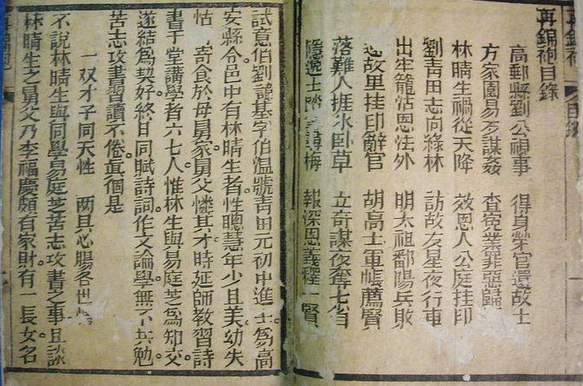 再錦袍目錄
高郵縣劉公視事 得身榮官還故土
方家園易歹謀姦 查宿業罪惡歸
林晴生禍從天降 效恩人公庭挂印
劉青田志向綠林 訪故友星夜行車
出生籠沾恩性外 明太祖鄱陽兵敗
故里挂印辭官 胡高士軍帳薦賢
落難人捱氷卧草 立奇謀夜奪七省
隱遁士踏 梅 報深恩義釋一賢
試意伯劉諱基字伯溫號青田元初中進士為高
安縣令邑中有林晴生者性聰慧年少且美幼失
怙 寄食於母舅家舅父憐其才時延師教習詩
書于堂講學者六七人惟林生與易庭芝為知交
遂結為契好終日同賦詩詞作文論學無不共勉
苦志攻書習讀不倦真個是
一双才子同天性 兩具心腸各世
不說林晴生與同學易庭芝苦志攻書之事且談
林晴生之舅父乃李福慶頗有家財有一長女名